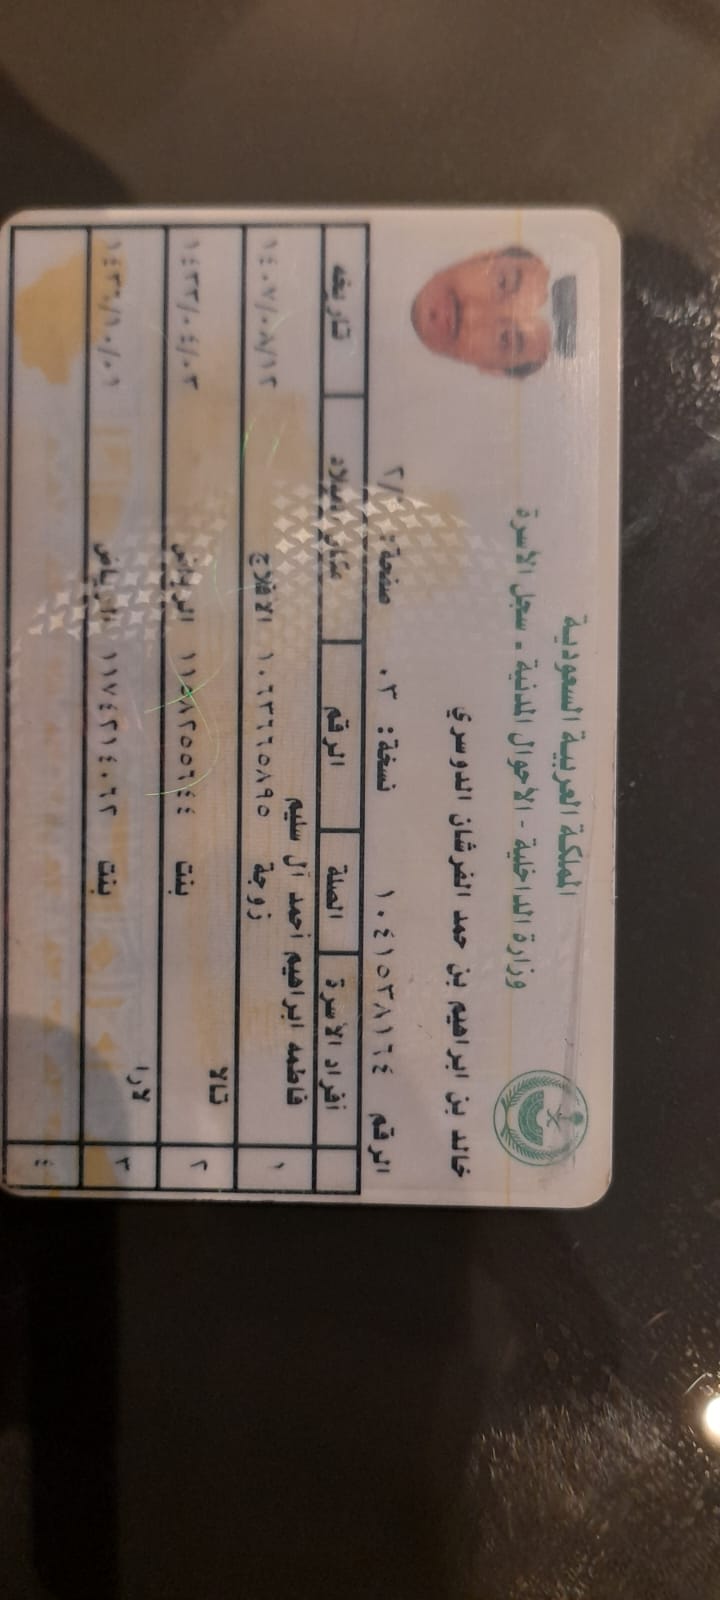 المملكة العربية السعودية
وزارة الداخلية - الأحوال المدنية - سجل الأسرة
خالد بن ابراهيم بن حمد الفرشان الدوسري
الرقم ١٠٤١٥٣٨١٦٤ نسخة: ٠٣ صفحة:
أفراد الأسرة الصلة الرقم مكان الميلاد تاريخه
١ فاطمه ابراهيم احمد آل سليم
زوجة ١٠٦٣٦٦٥٨٩٥ الافلاج ١٤٠٧/٠٨/١٢
٢ تالا
بنت الرياض ١٤٣٣/٠٤/٠٣
٣ لارا
بنت ١١٧٤٢١٤٠٦٢ الرياض
٤